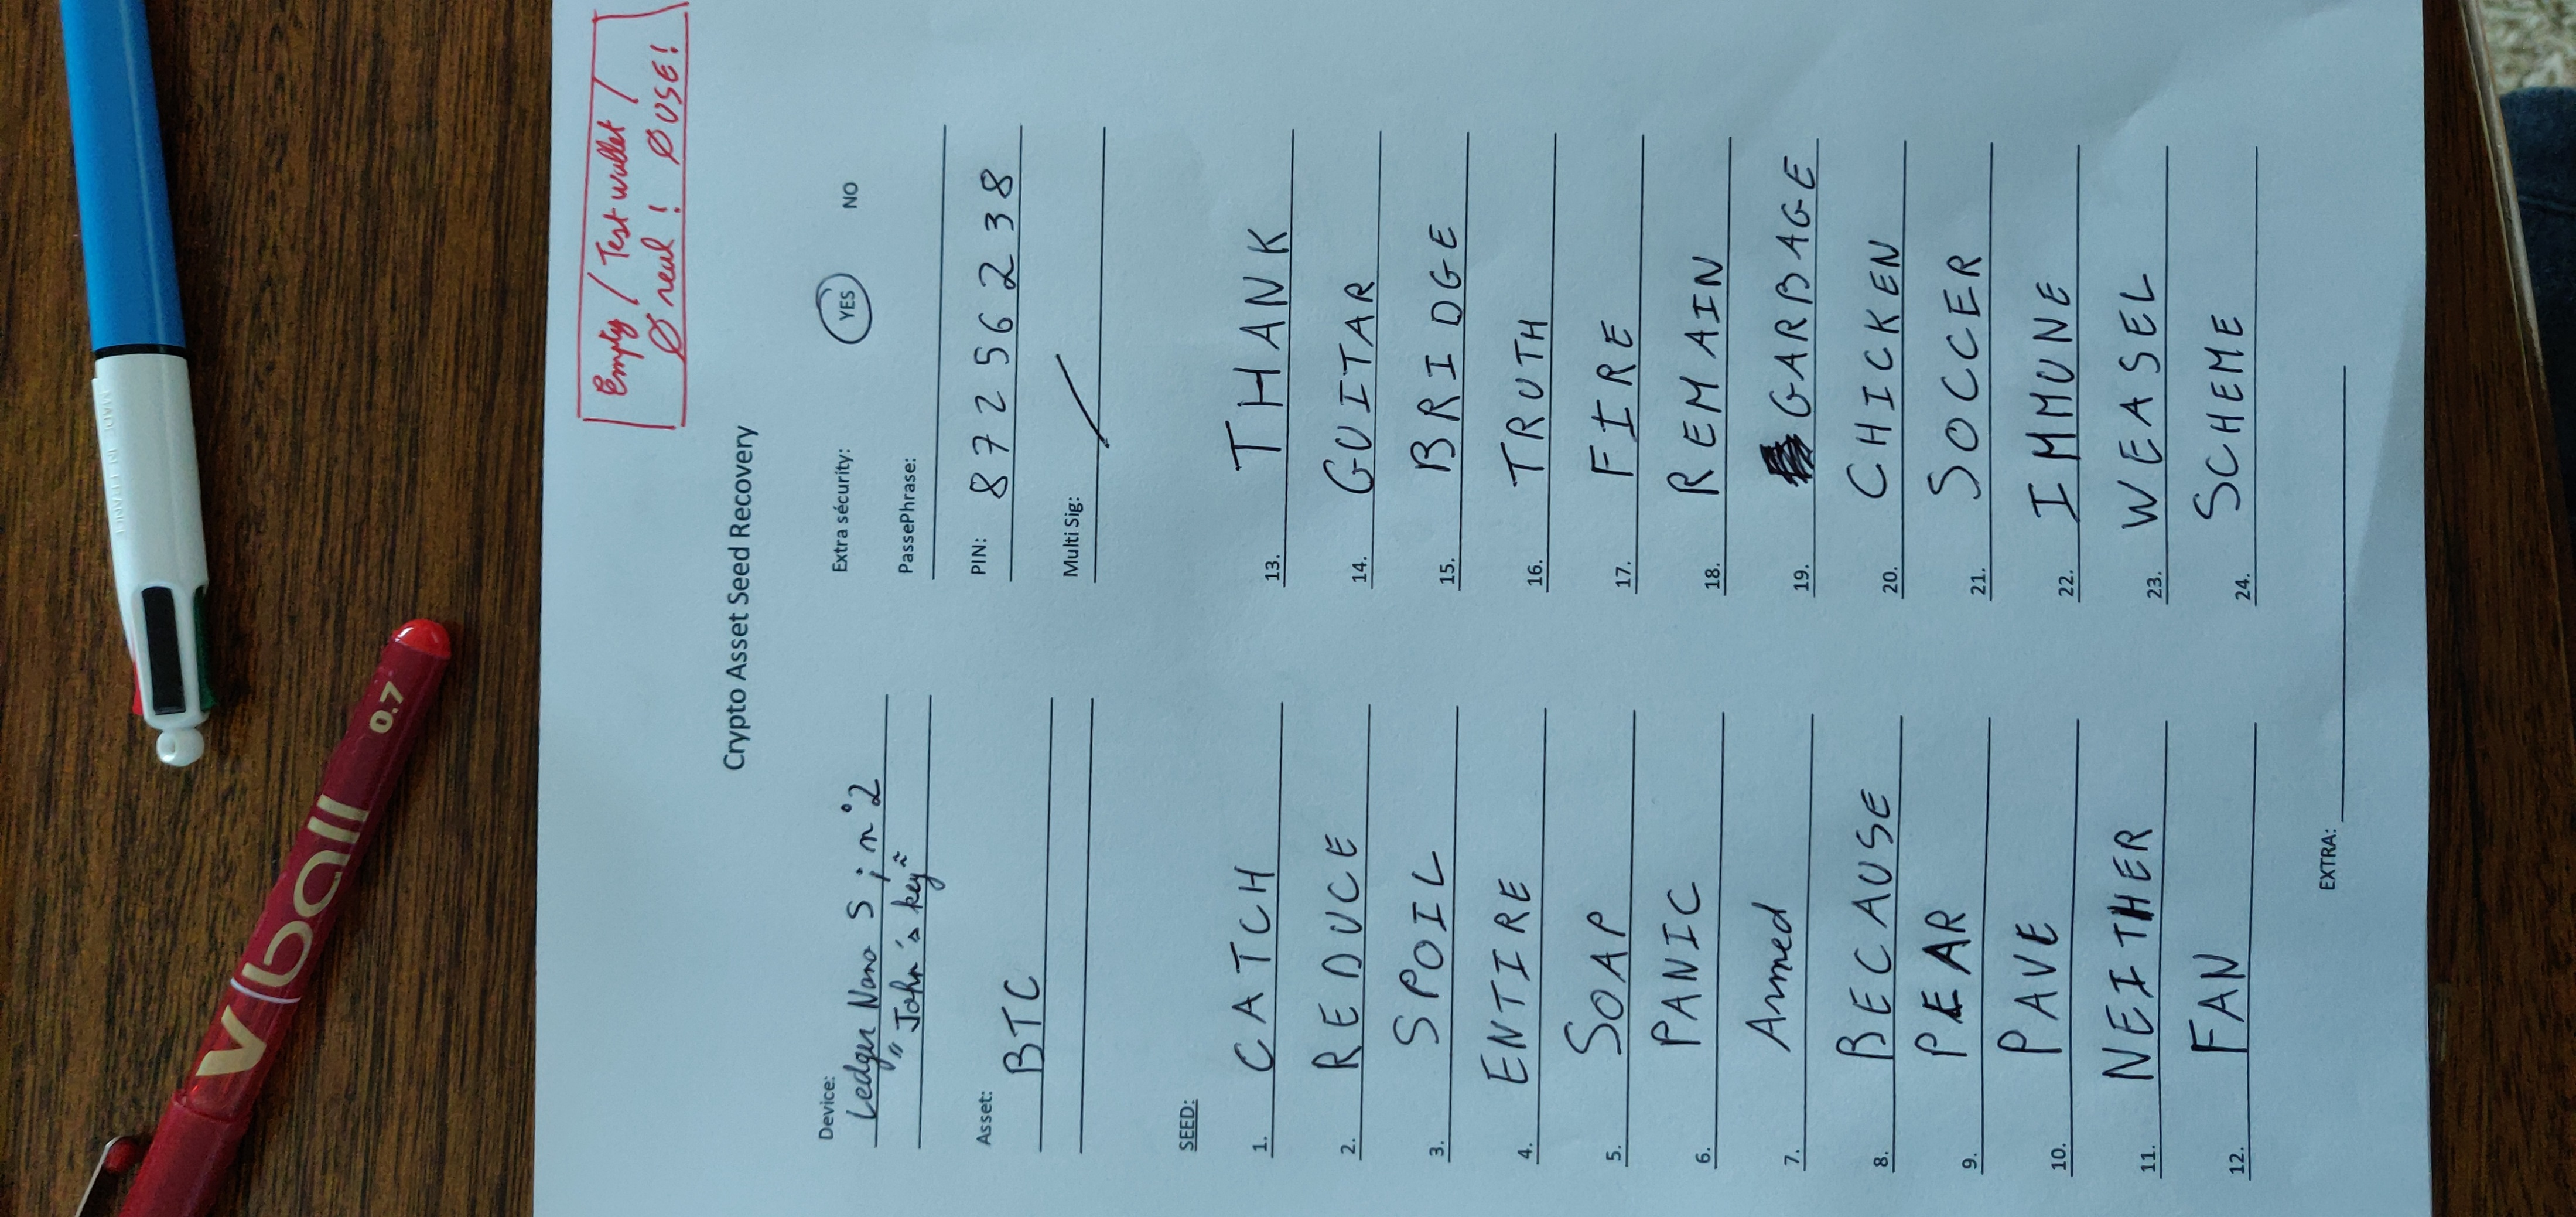 Empty / Test wallet /
Ø real ! Ø USE!
Crypto Asset Seed Recovery
Device:
Ledger Nano S ; n°2
"John's key"
Extra sécurity: YES NO
PassePhrase:
Asset:
BTC
PIN: 8 7 2 5 6 2 3 8
Multi Sig: /
SEED:
1. CATCH
2. REDUCE
3. SPOIL
4. ENTIRE
5. SOAP
6. PANIC
7. Armed
8. BECAUSE
9. PEAR
10. PAVE
11. NEITHER
12. FAN
13. THANK
14. GUITAR
15. BRIDGE
16. TRUTH
17. FIRE
18. REMAIN
19. GARBAGE
20. CHICKEN
21. SOCCER
22. IMMUNE
23. WEASEL
24. SCHEME
EXTRA:
V ball 0.7